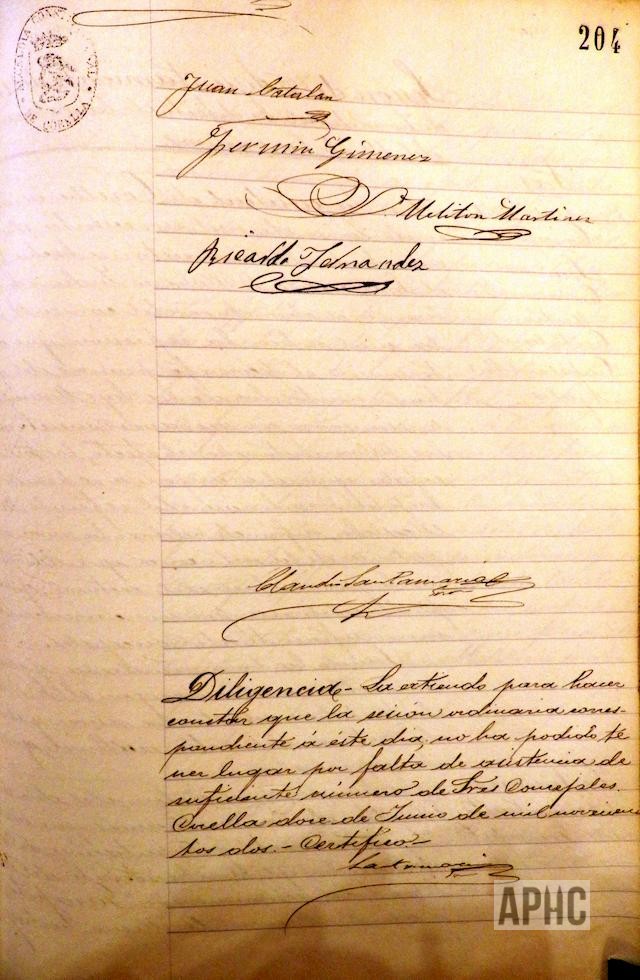 204
ALCALDIA CONSTITUCIONAL DE CORELLA
Juan Catalan
Fermin Gimenez
P. Meliton Martinez
Ricardo Fernandez
Claudio San
Diligencia - La extiendo para hacer
constar que la sesión ordinaria corres-
pondiente á éste dia, no ha podido té
ner lugar por falta de asistencia de
suficiente número de Sres Concejales.
Corella doce de Junio de mil novecien
tos dos. - Certifico -
APHC